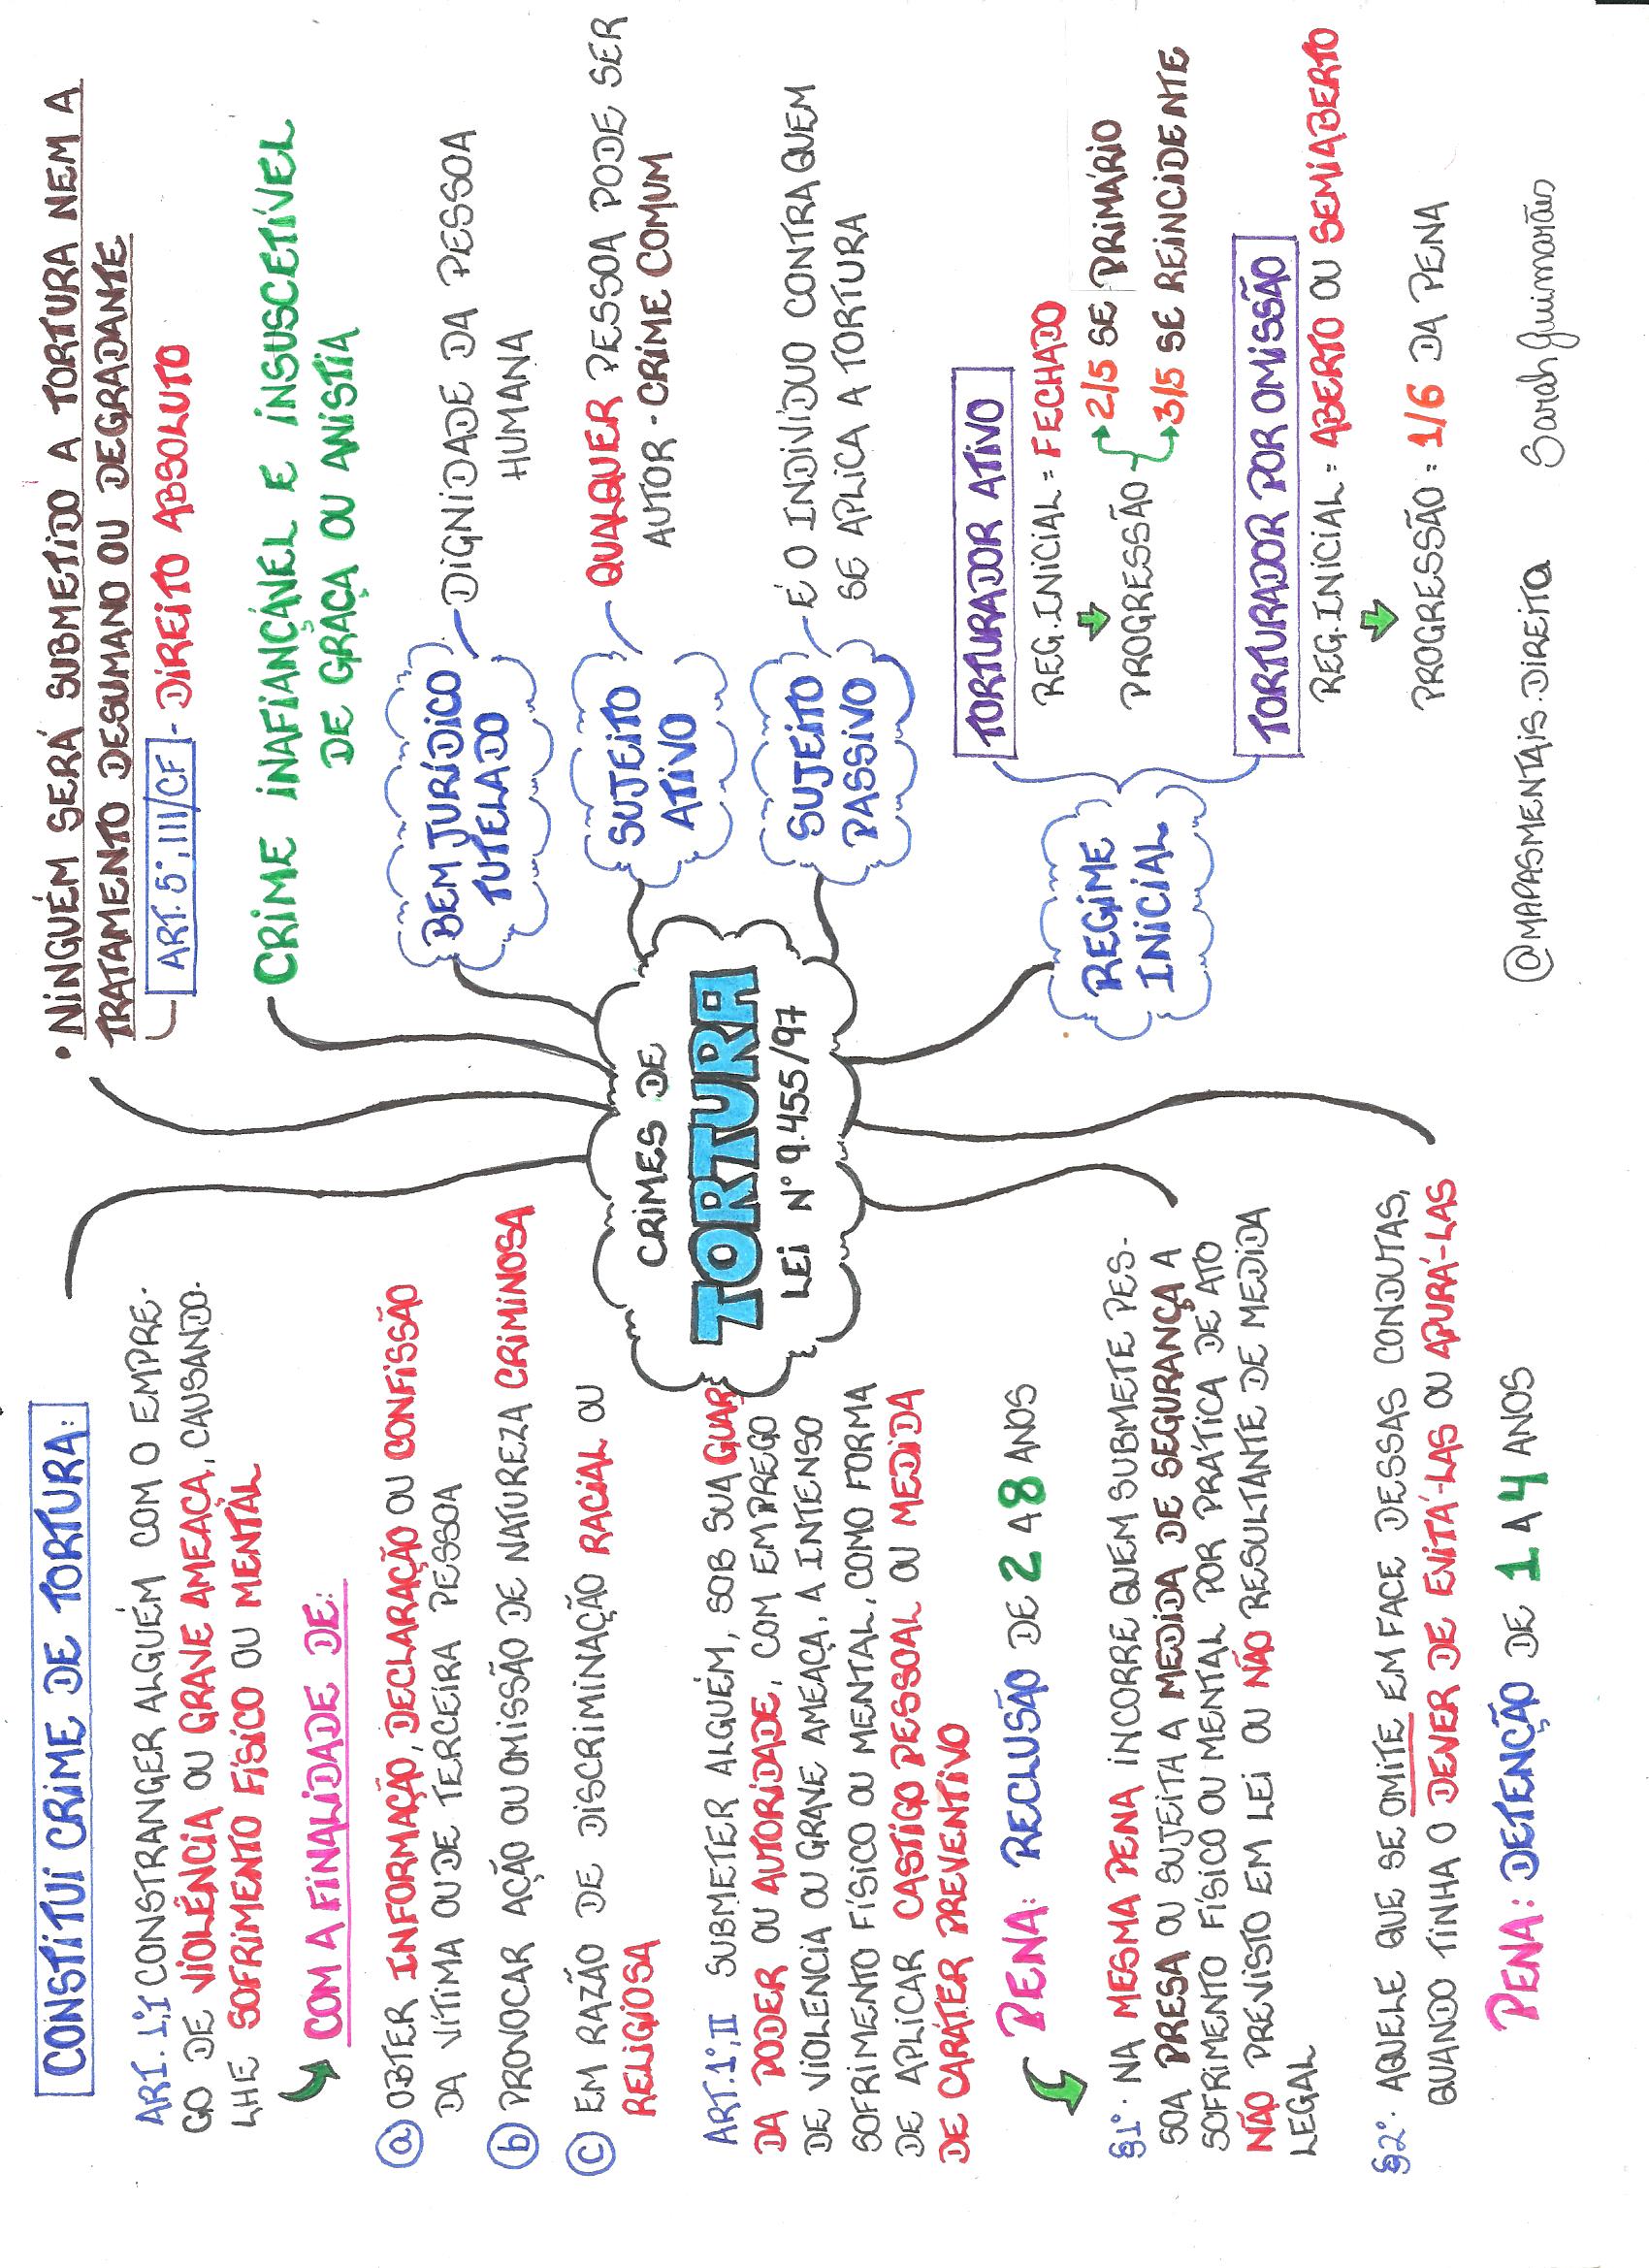 CONSTITUI CRIME DE TORTURA:
ART. 1º, I CONSTRANGER ALGUÉM COM O EMPRE-
GO DE VIOLÊNCIA OU GRAVE AMEAÇA, CAUSANDO-
LHE SOFRIMENTO FÍSICO OU MENTAL
COM A FINALIDADE DE:
a OBTER INFORMAÇÃO, DECLARAÇÃO OU CONFISSÃO
DA VÍTIMA OU DE TERCEIRA PESSOA
b PROVOCAR AÇÃO OU OMISSÃO DE NATUREZA CRIMINOSA
c EM RAZÃO DE DISCRIMINAÇÃO RACIAL OU
RELIGIOSA
ART. 1º, II SUBMETER ALGUÉM, SOB SUA GUAR
DA PODER OU AUTORIDADE, COM EMPREGO
DE VIOLENCIA OU GRAVE AMEAÇA, A INTENSO
SOFRIMENTO FÍSICO OU MENTAL, COMO FORMA
DE APLICAR CASTIGO PESSOAL OU MEDIDA
DE CARÁTER PREVENTIVO
PENA: RECLUSÃO DE 2 A 8 ANOS
§1º. NA MESMA PENA INCORRE QUEM SUBMETE PES-
SOA PRESA OU SUJEITA A MEDIDA DE SEGURANÇA A
SOFRIMENTO FÍSICO OU MENTAL POR PRÁTICA DE ATO
NÃO PREVISTO EM LEI OU NÃO RESULTANTE DE MEDIDA
LEGAL
§2º. AQUELE QUE SE OMITE EM FACE DESSAS CONDUTAS,
QUANDO TINHA O DEVER DE EVITÁ-LAS OU APURÁ-LAS
PENA: DETENÇÃO DE 1 A 4 ANOS
CRIMES DE
TORTURA
LEI Nº 9.455/97
• NINGUÉM SERÁ SUBMETIDO A TORTURA NEM A
TRATAMENTO DESUMANO OU DEGRADANTE
ART. 5º, III/CF - DIREITO ABSOLUTO
CRIME INAFIANÇÁVEL E INSUSCETÍVEL
DE GRAÇA OU ANISTIA
BEM JURÍDICO
TUTELADO
DIGNIDADE DA PESSOA
HUMANA
SUJEITO
ATIVO
QUALQUER PESSOA PODE SER
AUTOR - CRIME COMUM
SUJEITO
PASSIVO
É O INDIVÍDUO CONTRA QUEM
SE APLICA A TORTURA
REGIME
INICIAL
TORTURADOR ATIVO
REG. INICIAL = FECHADO
PROGRESSÃO
2/5 SE PRIMÁRIO
3/5 SE REINCIDENTE
TORTURADOR POR OMISSÃO
REG. INICIAL: ABERTO OU SEMIABERTO
PROGRESSÃO: 1/6 DA PENA
@MAPASMENTAIS.DIREITO Sarah Guimarães